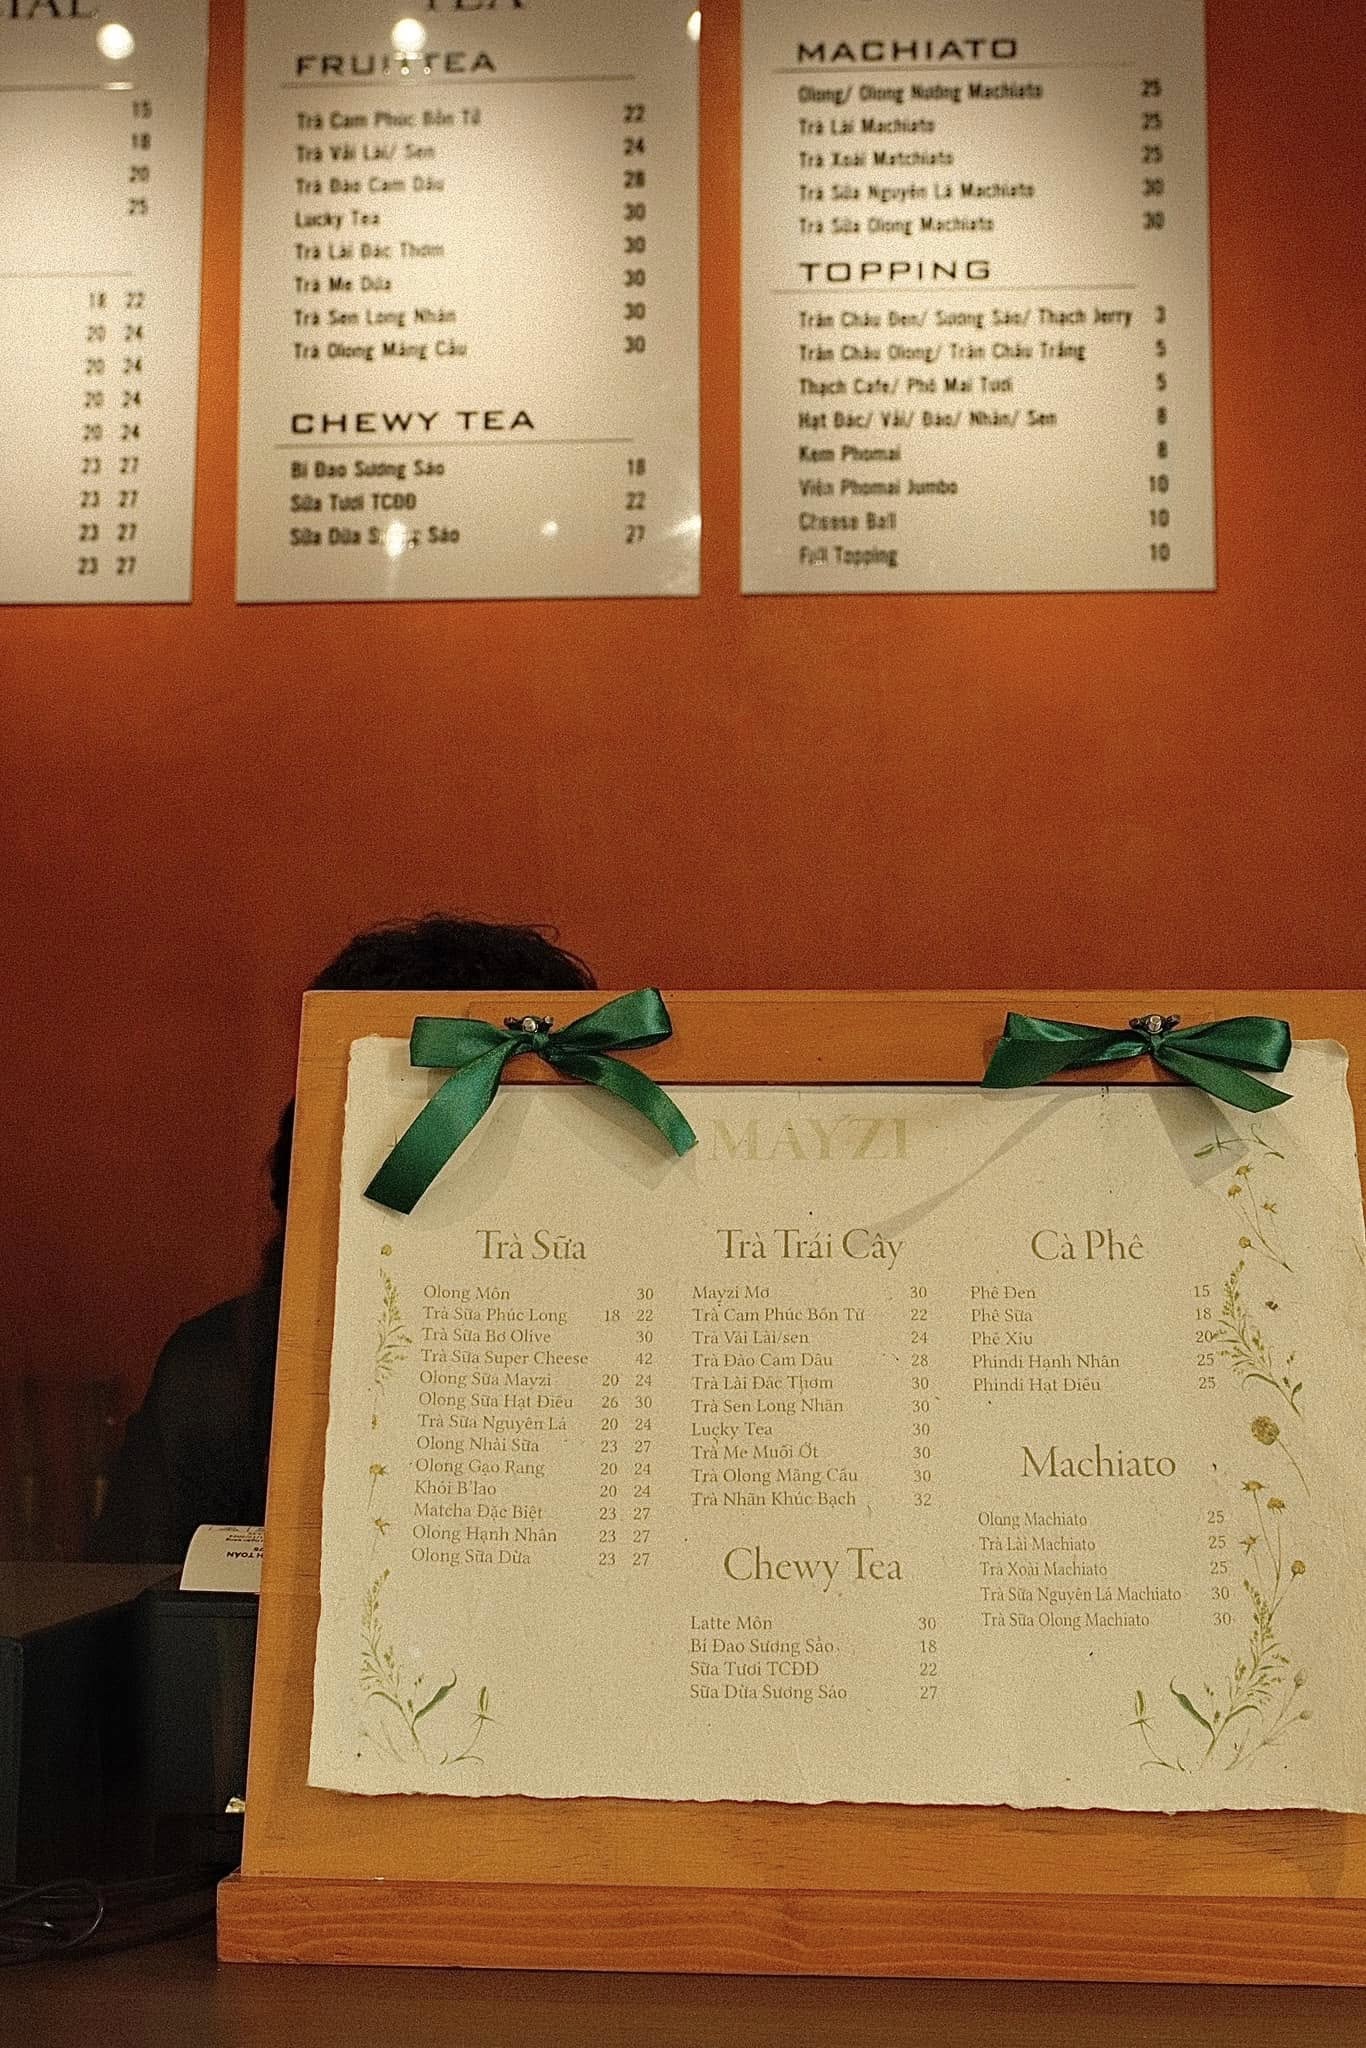 TEA
FRUIT TEA
Trà Cam Phúc Bồn Tử 22
Trà Vải Lài/ Sen 24
Trà Đào Cam Dâu 28
Lucky Tea 30
Trà Lài Đác Thơm 30
Trà Me Dứa 30
Trà Sen Long Nhãn 30
Trà Olong Mãng Cầu 30
CHEWY TEA
Bí Đao Sương Sáo 18
Sữa Tươi TCĐĐ 22
Sữa Dừa Sương Sáo 27
15
18
20
25
18 22
20 24
20 24
20 24
20 24
23 27
23 27
23 27
23 27
MACHIATO
Olong/ Olong Nướng Machiato 25
Trà Lài Machiato 25
Trà Xoài Matchiato 25
Trà Sữa Nguyên Lá Machiato 30
Trà Sữa Olong Machiato 30
TOPPING
Trân Châu Đen/ Sương Sáo/ Thạch Jerry 3
Trân Châu Olong/ Trân Châu Trắng 5
Thạch Cafe/ Phô Mai Tươi 5
Hạt Đác/ Vải/ Đào/ Nhãn/ Sen 8
Kem Phomai 8
Viên Phomai Jumbo 10
Cheese Ball 10
Full Topping 10
MAYZI
Trà Sữa
Olong Môn 30
Trà Sữa Phúc Long 18 22
Trà Sữa Bơ Olive 30
Trà Sữa Super Cheese 42
Olong Sữa Mayzi 20 24
Olong Sữa Hạt Điều 26 30
Trà Sữa Nguyên Lá 20 24
Olong Nhài Sữa 23 27
Olong Gạo Rang 20 24
Khói B'lao 20 24
Matcha Đặc Biệt 23 27
Olong Hạnh Nhân 23 27
Olong Sữa Dừa 23 27
Trà Trái Cây
Mayzi Mơ 30
Trà Cam Phúc Bồn Tử 22
Trà Vải Lài/sen 24
Trà Đào Cam Dâu 28
Trà Lài Đác Thơm 30
Trà Sen Long Nhãn 30
Lucky Tea 30
Trà Me Muối Ớt 30
Trà Olong Mãng Cầu 30
Trà Nhãn Khúc Bạch 32
Chewy Tea
Latte Môn 30
Bí Đao Sương Sáo 18
Sữa Tươi TCĐD 22
Sữa Dừa Sương Sáo 27
Cà Phê
Phê Đen 15
Phê Sữa 18
Phê Xỉu 20
Phindi Hạnh Nhân 25
Phindi Hạt Điều 25
Machiato
Olong Machiato 25
Trà Lài Machiato 25
Trà Xoài Machiato 25
Trà Sữa Nguyên Lá Machiato 30
Trà Sữa Olong Machiato 30